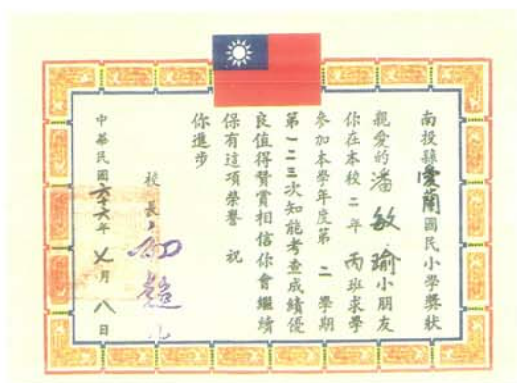 南投縣愛蘭國民小學獎狀
親愛的潘敏瑜小朋友
你在本校二年丙班求學
參加本學年度第二學期
第一二三次知能考查成績優
良值得贊賞相信你會繼續
保有這項榮譽 祝
你進步
校長
中華民國六十六年 月八日